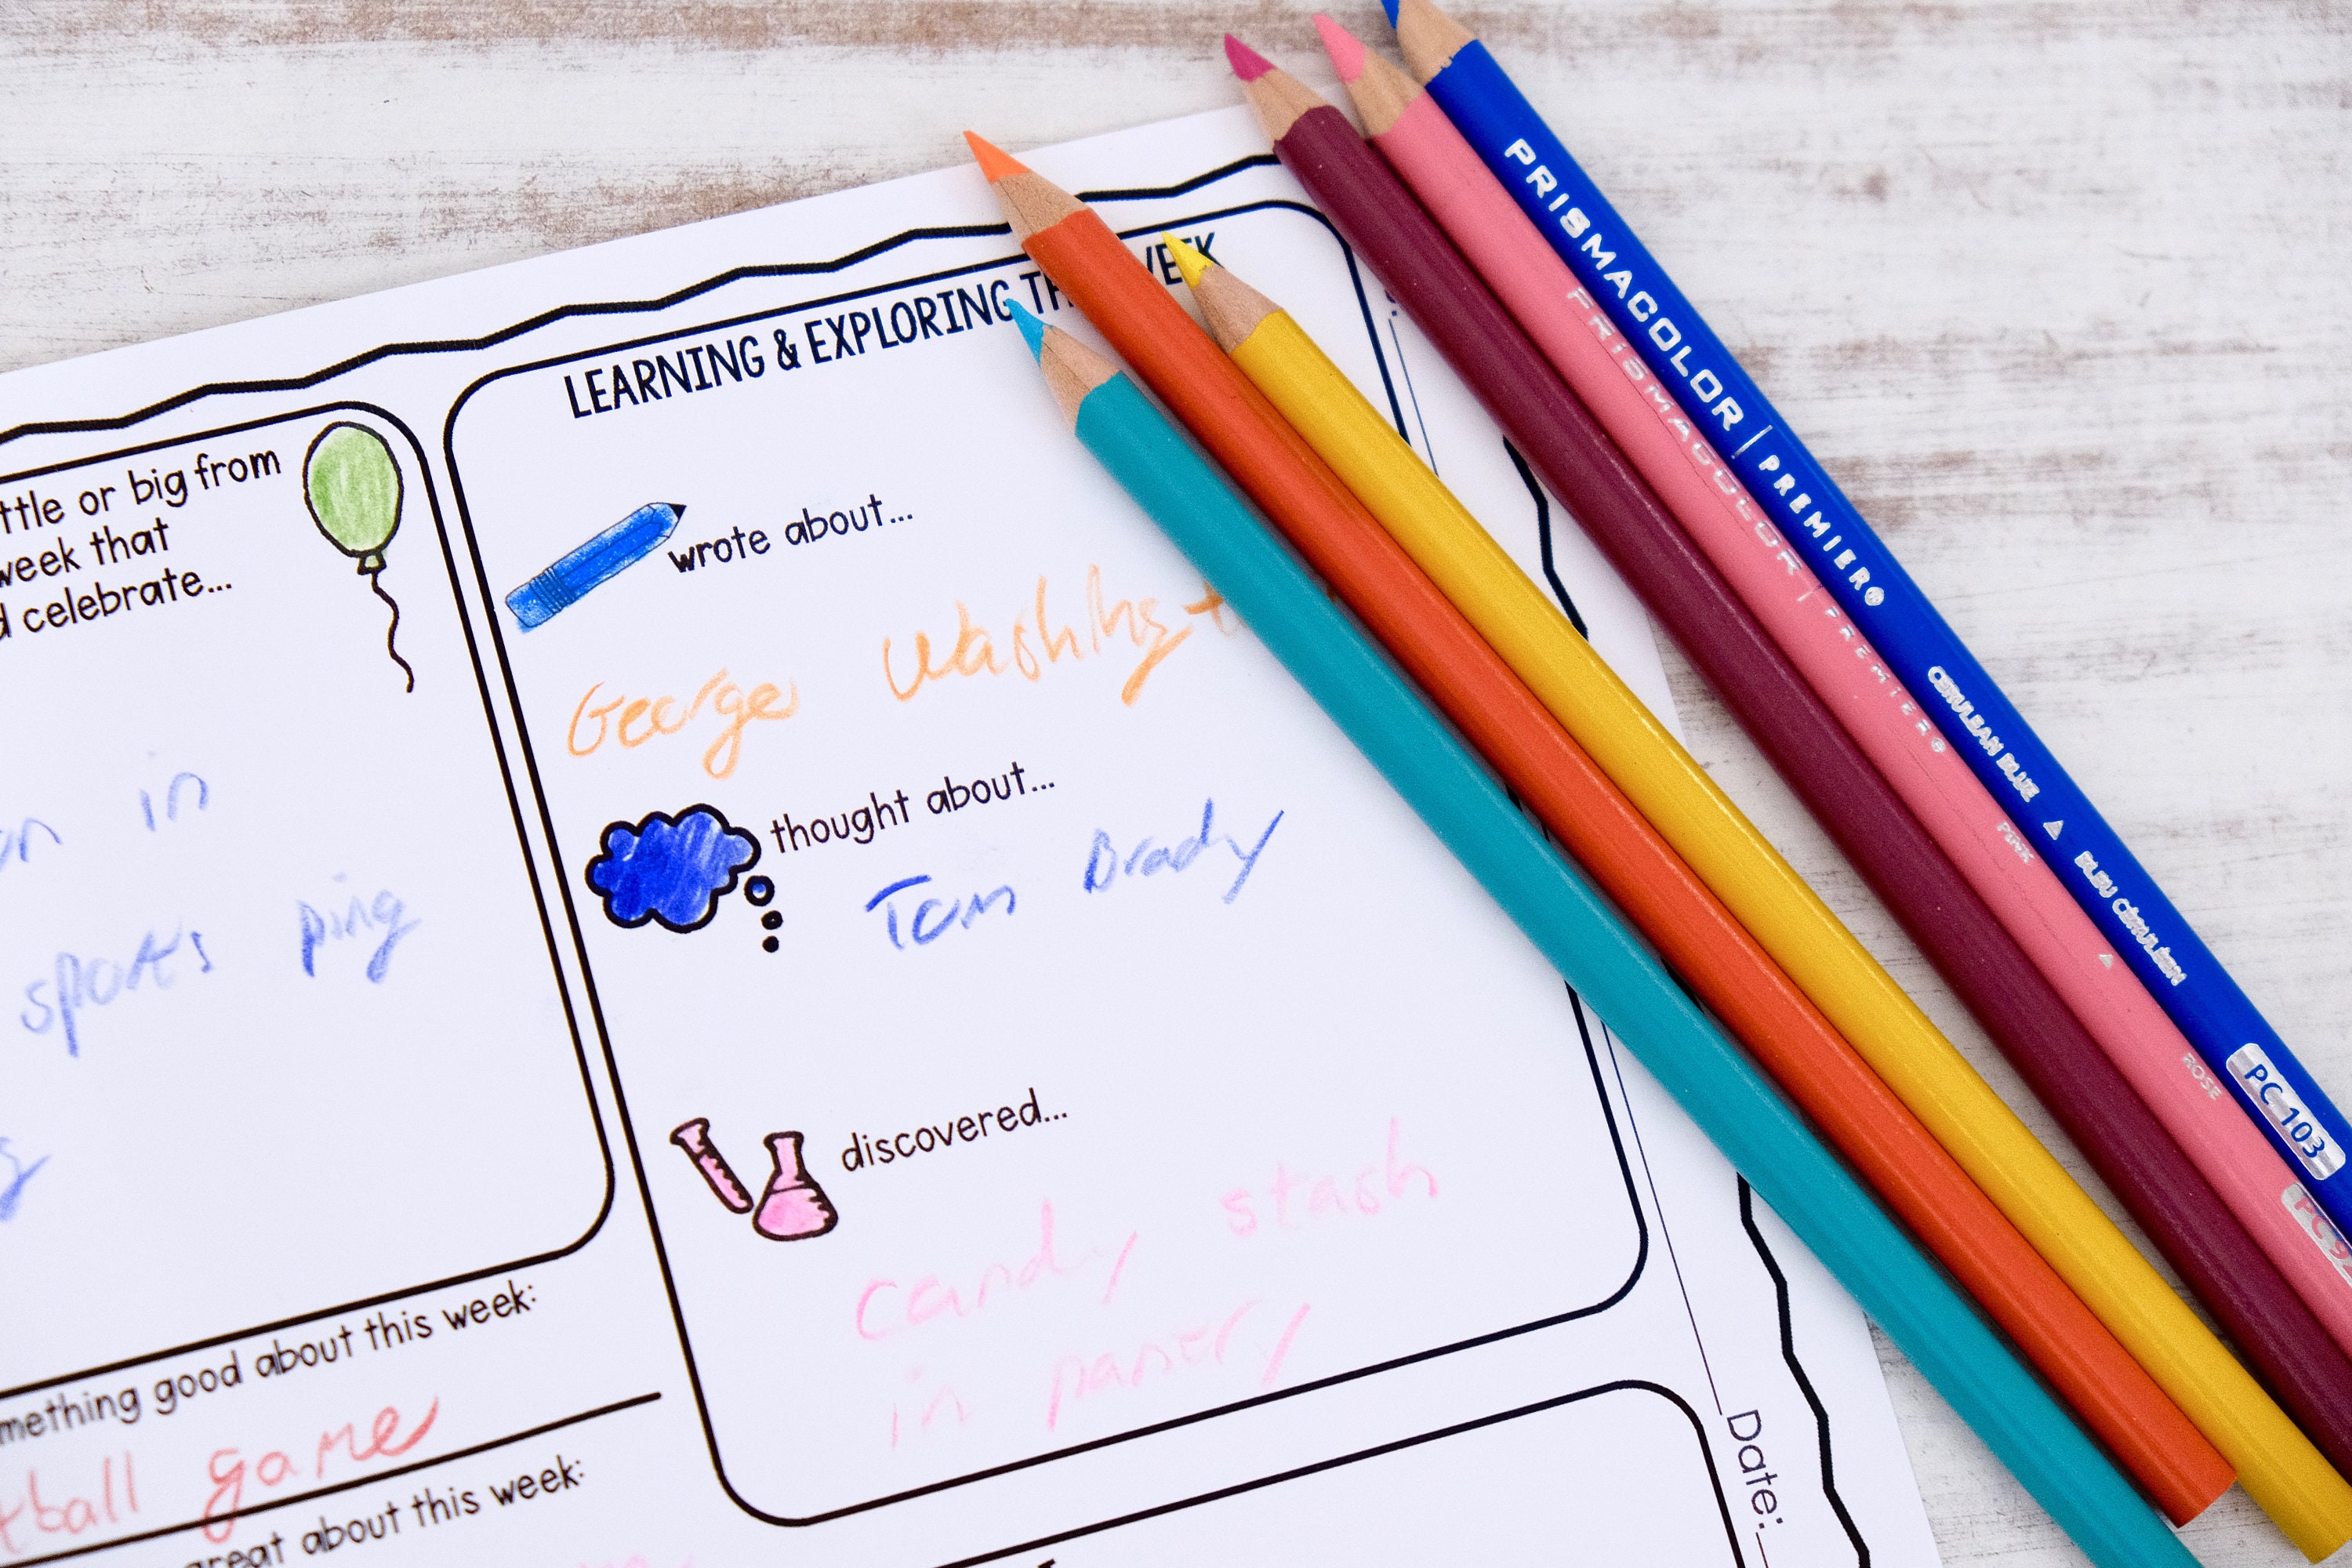 LEARNING & EXPLORING TH WEEK
ttle or big from
week that
d celebrate...
in
sports ping
mething good about this week:
tball game
great about this week:
wrote about...
George Washingt
thought about...
Tom Brady
discovered...
candy stash
in pantry
Date:
PRISMACOLOR | PREMIER® CERULEAN BLUE ▲ BLEU CÉRULÉEN PC 103
PRISMACOLOR | PREMIER® PINK ▲ ROSE